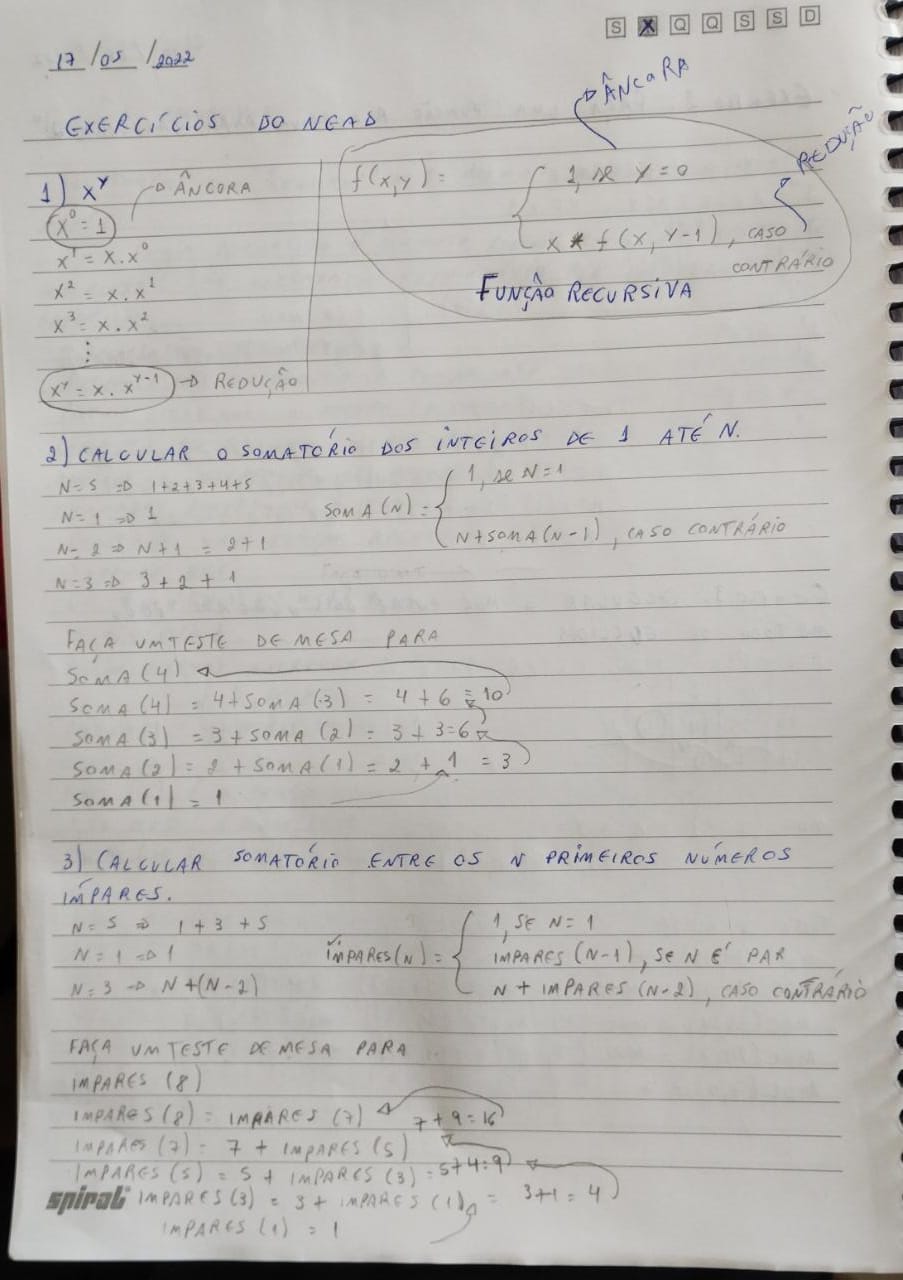 S X Q Q S S D
17/05/2022
EXERCÍCIOS DO NEAD
1) x^y
→ ÂNCORA
x^0 = 1
x^1 = x . x^0
x^2 = x . x^1
x^3 = x . x^2
⋮
x^y = x . x^(y-1) → REDUÇÃO
→ ÂNCORA
REDUÇÃO
f(x,y) = { 1, se y = 0
x * f(x, y-1), CASO CONTRÁRIO
FUNÇÃO RECURSIVA
2) CALCULAR O SOMATÓRIO DOS INTEIROS DE 1 ATÉ N.
N=5 ⇒ 1+2+3+4+5
N=1 ⇒ 1
N=2 ⇒ N+1 = 2+1
N=3 ⇒ 3+2+1
SOMA(N) = { 1, se N=1
N+SOMA(N-1), CASO CONTRÁRIO
FAÇA UM TESTE DE MESA PARA
SOMA(4)
SOMA(4) = 4+SOMA(3) = 4+6 = 10
SOMA(3) = 3+SOMA(2) = 3+3=6
SOMA(2) = 2+SOMA(1) = 2+1 = 3
SOMA(1) = 1
3) CALCULAR SOMATÓRIO ENTRE OS N PRIMEIROS NÚMEROS
ÍMPARES.
N=5 ⇒ 1+3+5
N=1 ⇒ 1
N=3 → N+(N-2)
ÍMPARES(N) = { 1, SE N=1
IMPARES(N-1), SE N É PAR
N + IMPARES(N-2), CASO CONTRÁRIO
FAÇA UM TESTE DE MESA PARA
IMPARES (8)
IMPARES (8) = IMPARES (7) 7+9=16
IMPARES (7) = 7 + IMPARES (5)
IMPARES (5) = 5 + IMPARES (3) = 5+4=9
spiral IMPARES(3) = 3 + IMPARES (1) = 3+1=4
IMPARES (1) = 1